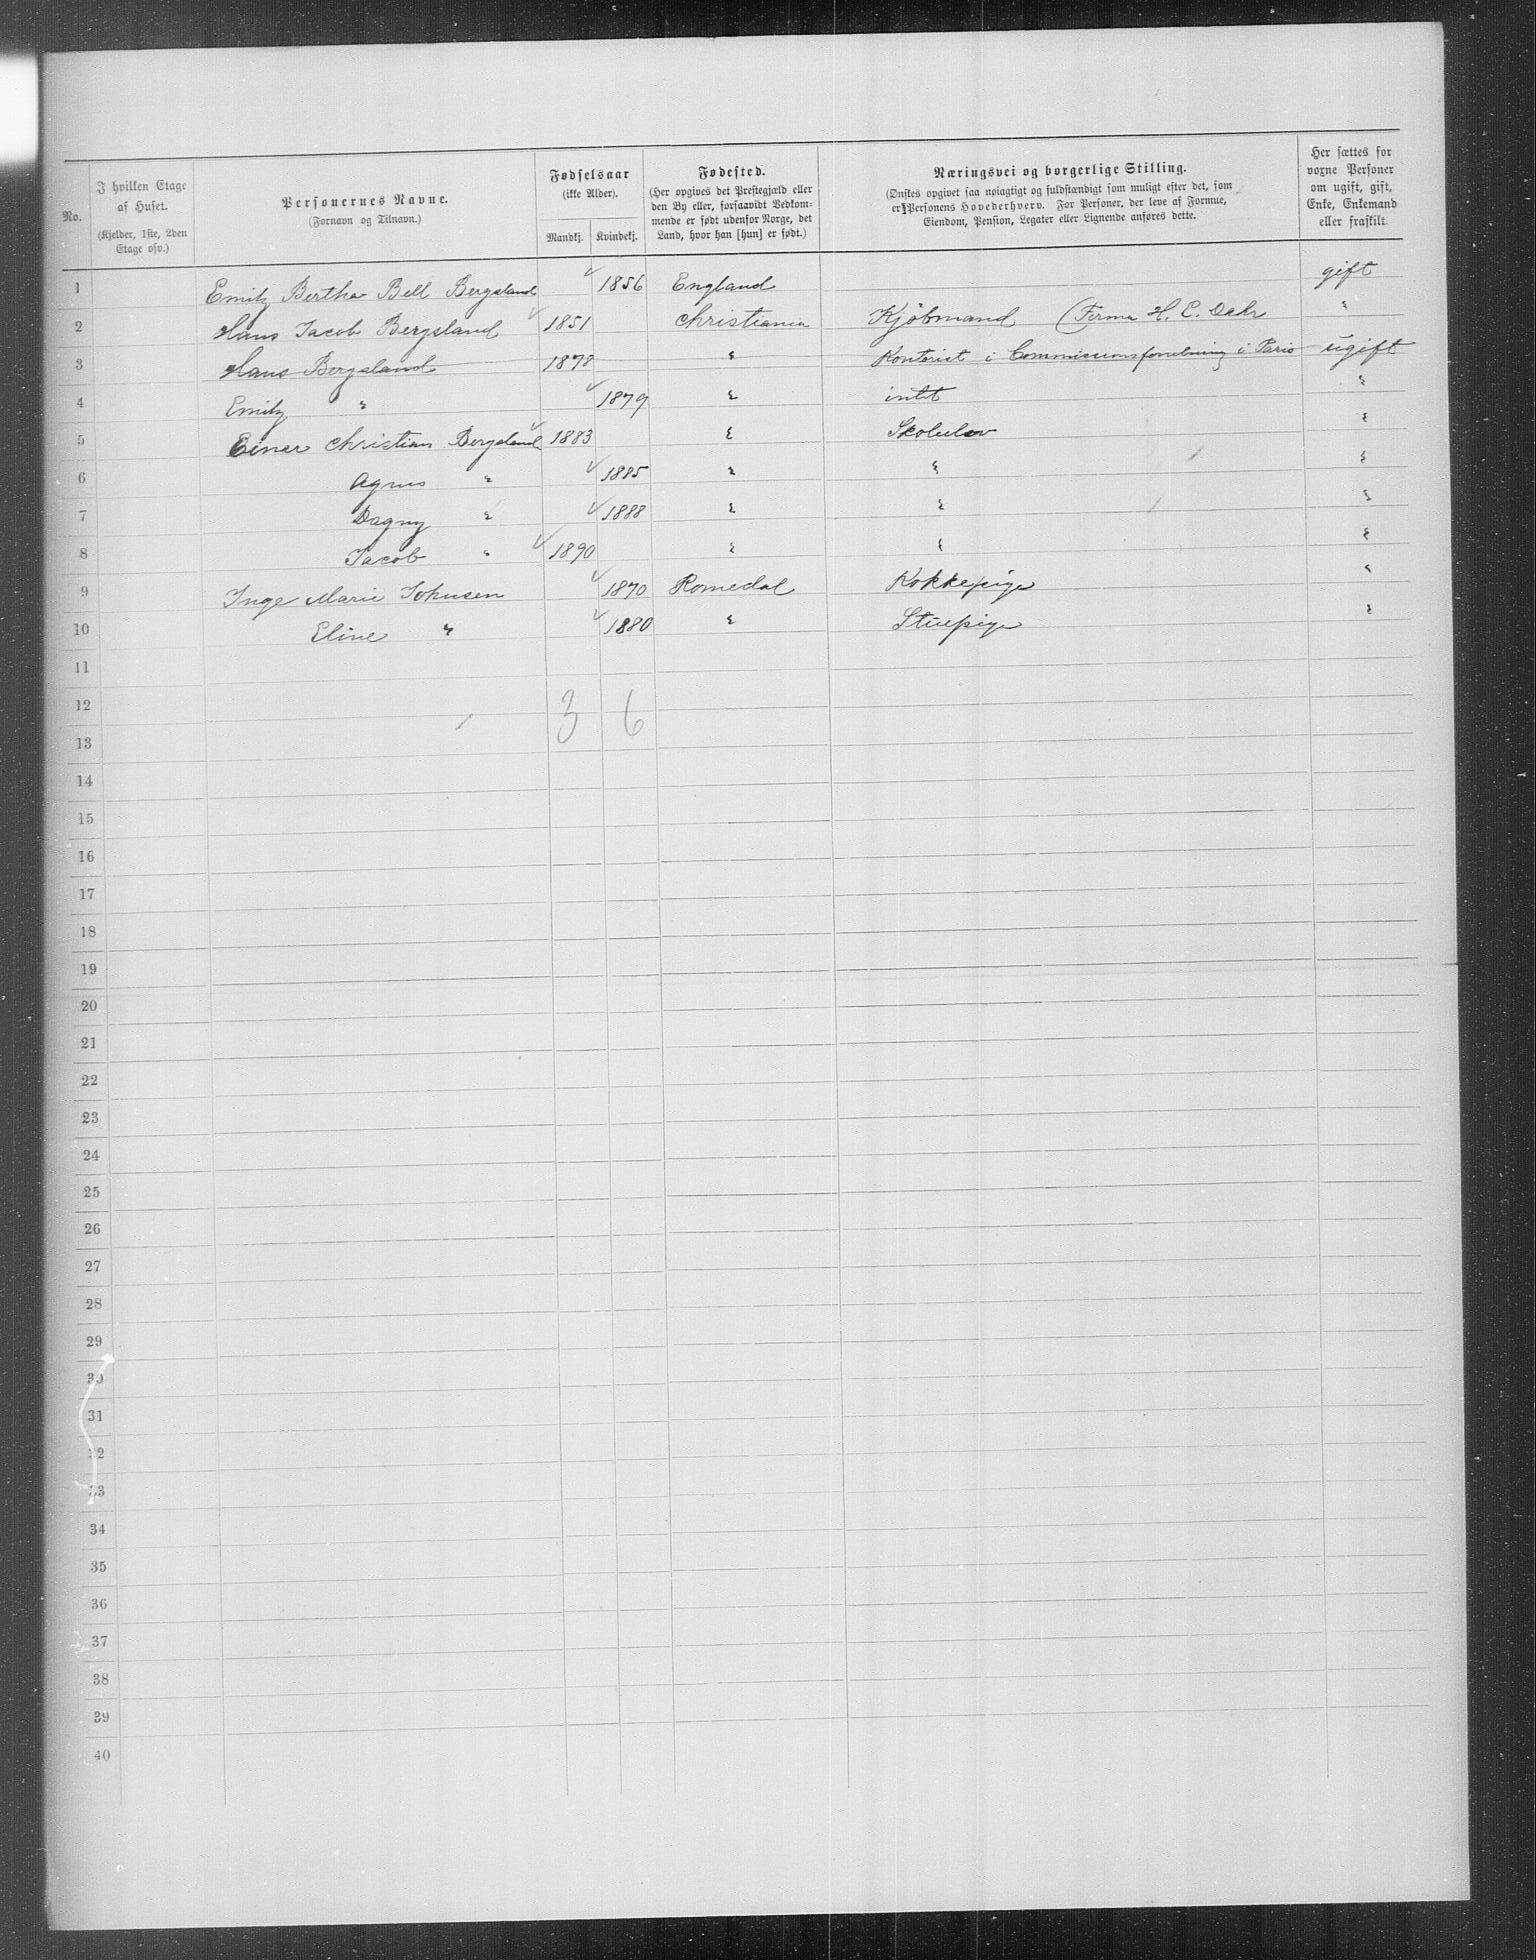 No. | I hvilken Etage af Huset. (Kjelder, 1ste, 2den Etage osv.) | Personernes Navne. (Fornavn og Tilnavn.) | Fødselsaar (ikke Alder). Mandkj. | Kvindekj. | Fødested. (Her opgives det Prestegjæld eller den By eller, forsaavidt Vedkommende er født udenfor Norge, det Land, hvor han [hun] er født.) | Næringsvei og borgerlige Stilling. (Ønskes opgivet saa nøiagtigt og fuldstændigt som muligt efter det, som er Personens Hovederhverv. For Personer, der leve af Formue, Eiendom, Pension, Legater eller Lignende anføres dette.) | Her sættes for voxne Personer om ugift, gift, Enke, Enkemand eller fraskilt.
1 Emily Bertha Bell Bergsland 1856 England gift
2 Hans Jacob Bergsland 1851 Christiania Kjøbmand (Firma H. C. Dehr "
3 Hans Bergsland 1878 " Kontorist i Commissionsforretning i Paris ugift
4 Emily " 1879 " intet "
5 Einar Christian Bergsland 1883 " Skoleelev "
6 Agnes " 1885 " " "
7 Dagny " 1888 " " "
8 Jacob " 1890 " " "
9 Inge Marie Johnsen 1870 Romedal Kokkepige "
10 Eline " 1880 " Stuepige "
11
12
3 6
13
14
15
16
17
18
19
20
21
22
23
24
25
26
27
28
29
30
31
32
33
34
35
36
37
38
39
40